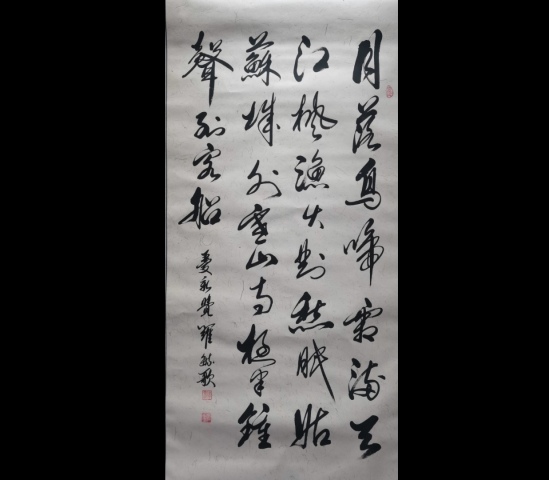 月落烏啼霜滿天
江楓漁火對愁眠姑
蘇城外寒山寺夜半鍾
聲到客船
愛新覺羅